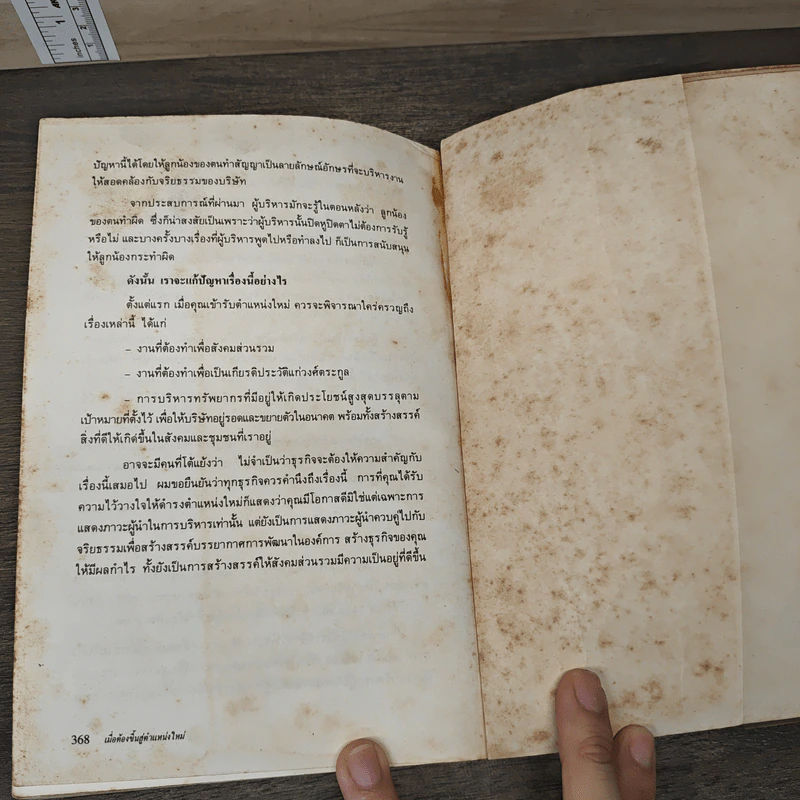 inches
1
2
3
1
ปัญหานี้ได้โดยให้ลูกน้องของตนทำสัญญาเป็นลายลักษณ์อักษรที่จะบริหารงาน
ให้สอดคล้องกับจริยธรรมของบริษัท
จากประสบการณ์ที่ผ่านมา ผู้บริหารมักจะรู้ในตอนหลังว่า ลูกน้อง
ของตนทำผิด ซึ่งก็น่าสงสัยเป็นเพราะว่าผู้บริหารนั้นปิดหูปิดตาไม่ต้องการรับรู้
หรือไม่ และบางครั้งบางเรื่องที่ผู้บริหารพูดไปหรือทำลงไป ก็เป็นการสนับสนุน
ให้ลูกน้องกระทำผิด
ดังนั้น เราจะแก้ปัญหาเรื่องนี้อย่างไร
ตั้งแต่แรก เมื่อคุณเข้ารับตำแหน่งใหม่ ควรจะพิจารณาใคร่ครวญถึง
เรื่องเหล่านี้ ได้แก่
– งานที่ต้องทำเพื่อสังคมส่วนรวม
– งานที่ต้องทำเพื่อเป็นเกียรติประวัติแก่วงศ์ตระกูล
– การบริหารทรัพยากรที่มีอยู่ให้เกิดประโยชน์สูงสุดบรรลุตาม
เป้าหมายที่ตั้งไว้ เพื่อให้บริษัทอยู่รอดและขยายตัวในอนาคต พร้อมทั้งสร้างสรรค์
สิ่งที่ดีให้เกิดขึ้นในสังคมและชุมชนที่เราอยู่
อาจจะมีคนที่โต้แย้งว่า ไม่จำเป็นว่าธุรกิจจะต้องให้ความสำคัญกับ
เรื่องนี้เสมอไป ผมขอยืนยันว่าทุกธุรกิจควรคำนึงถึงเรื่องนี้ การที่คุณได้รับ
ความไว้วางใจให้ดำรงตำแหน่งใหม่ก็แสดงว่าคุณมีโอกาสดีมิใช่แต่เฉพาะการ
แสดงภาวะผู้นำในการบริหารเท่านั้น แต่ยังเป็นการแสดงภาวะผู้นำควบคู่ไปกับ
จริยธรรมเพื่อสร้างสรรค์บรรยากาศการพัฒนาในองค์การ สร้างธุรกิจของคุณ
ให้มีผลกำไร ทั้งยังเป็นการสร้างสรรค์ให้สังคมส่วนรวมมีความเป็นอยู่ที่ดีขึ้น
368 เมื่อต้องขึ้นสู่ตำแหน่งใหม่